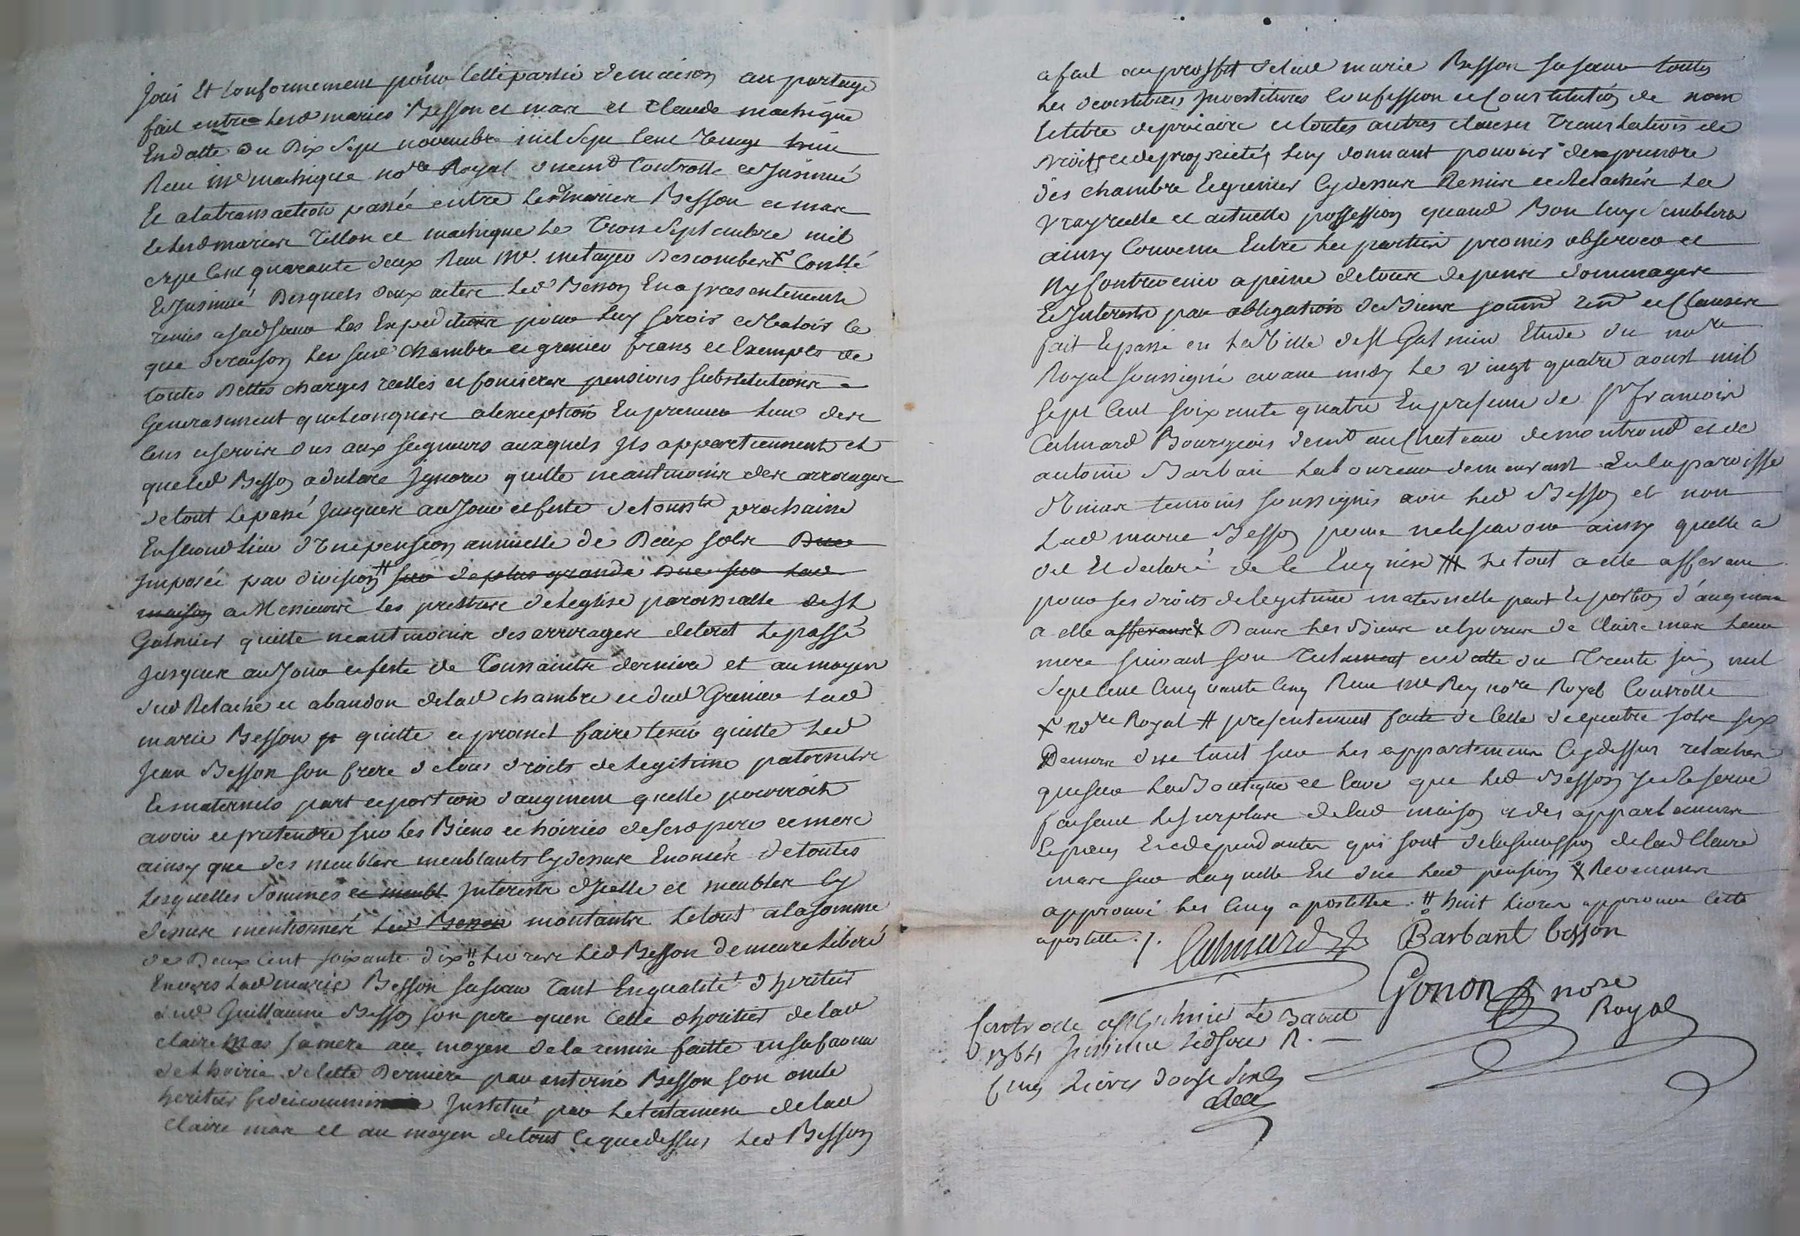 joui Et Conformement pour Cette partie de maison au partage
fait entre lesd maries Besson et mar et Claude mathique
En datte du Dix Sept novembre mil Sept Cent Trente
Reçu me mathique nore Royal Controllé et Jnsinué
Et a la transaction passée entre lesd maries Besson et mar
et lesd maries Tillon et mathique le Trois Septembre mil
Sept Cent quarante deux Reçu me. metayer Descombes x Conllé
Et Jnsinué Desquels deux actes led Besson En a presentement
remis a sad soeur les Expeditions pour luy servir et valoir ce
que de raison les susd chambre et grenier francs et Exempts de
toutes Dettes charges réelles et foncieres pensions substitutions
Generalement quelconques a l'exception En premier lieu des
Cens et servis dus aux seigneurs auxquels Jls appartiennent et
que led Besson a declaré Jgnorer quitte neantmoins des arrerages
de tout le passé Jusques au Jour et feste de touste prochaine
En second lieu d'Une pension annuelle de Deux sols Due
Jmposée par division # sur de plus grande Due sur lad
maison a Messieurs les prestres de l'eglise paroissialle de St
Galmier quitte neantmoins des arrerages de tout le passé
Jusques au Jour et feste de Toussaints derniere et au moyen
dud Relaché et abandon de lad chambre et dud Grenier lad
marie Besson quitte et promet faire tenir quitte led
Jean Besson son frere de tous droits de legitime paternels
Et maternels part et portion d'augment quelle pourroit
avoir et pretendre sur les Biens et hoiries de sesd pere et mere
ainsy que des meubles meublants Cydessus Enoncés de toutes
lesquelles sommes et meubl Jnterests d'Jcelle et meubles Cy
dessus mentionnés led Besson montants le tout a la somme
de Deux Cent soixante dix !! Livres led Besson Demeure liberé
Envers lad marie Besson sa soeur Tant En qualité d'heritier
dud Guillaume Besson son pere quen Celle d'heritier de lad
Claire Mar sa mere au moyen de la remise faitte en sa faveur
de l'hoirie de cette Derniere par antoine Besson son oncle
heritier fideicommis Jnstitué par le testament de lad
Claire mar et au moyen de tout Ce que dessus led Besson
a fait au proffit de lad marie Besson sa soeur toutes
les devestitures Jnvestitures Confession et Constitution de nom
et titre de precaire et toutes autres clauses Translatives de
droits et de proprietés luy donnant pouvoir de prendre
des chambre et grenier Cydessus Remis et Relachés la
Vray reelle et actuelle possession quand Bon luy semblera
ainsy Convenu Entre les parties promis observer et
ny Contrevenir a peine de tous depens dommages
Et Jnterests par obligation de Biens et Clauses
fait et passé en la Ville de St Galmier Etude du nore
Royal soussigné avant midy le vingt quatre aoust mil
sept Cent soixante quatre En presence de Sr francois
Calmard Bourgeois demt au Chateau de montrond et de
antoine Barban laboureur demeurant En la paroisse
temoins soussignés avec led Besson et non
lad marie Besson pour ne le scavoir ainsy quelle a
dit Et declaré de ce Enquise ### le tout a elle afferant
pour ses droits de legitime maternelle part et portion d'augment
a elle afferants Dans les Biens et hoiries de Claire mar leur
mere suivant son Testament en datte du Trente juin mil
Sept Cent Cinquante Cinq Reçu me Rey nore Royal Controllé
x nore Royal # presentement faite de Celle de quatre sols six
Deniers due tant sur les appartemens Cydessus relachés
que sur la Boutique et Cave que led Besson se Reserve
faisant le surplus de lad maison et des appartemens
Et places En dependantes qui sont de la succession de lad Claire
mar sur laquelle Est due lad pension x Revenus
approuvé les Cinq apostilles. !! huit Livres approuvé Cette
apostille ./. Calmard Barbant besson
Gonon nore
Royal
Controllé a St Galmier le 3 aout
1764 Jnsinué led jour R.
Cinq Livres douze sols